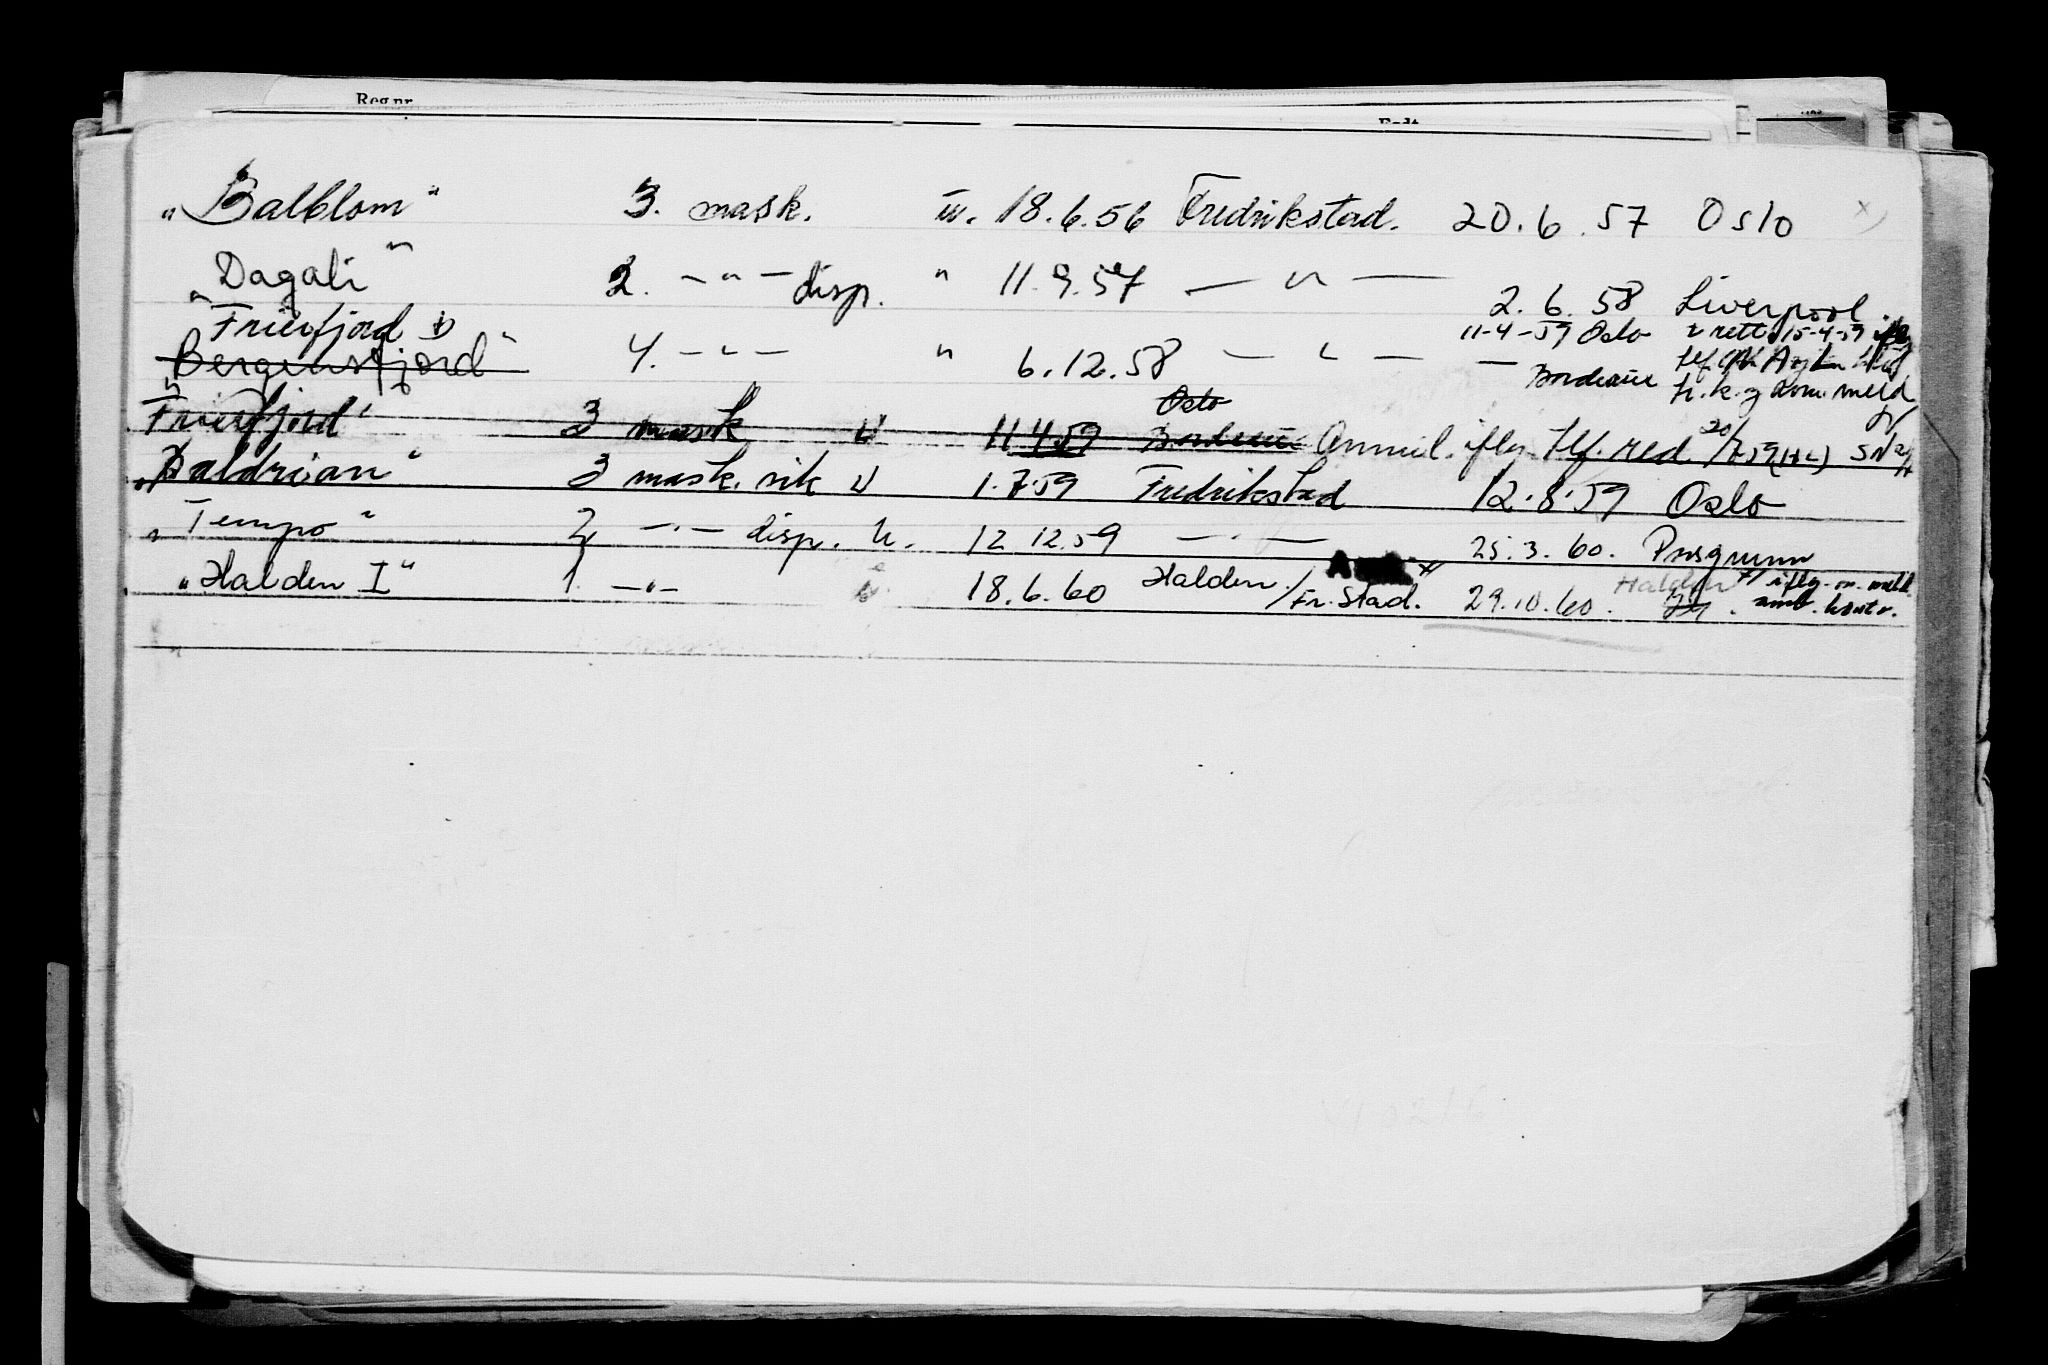 Reg.nr.
„Balblom" 3. mask. u. 18.6.56 Fredrikstad. 20.6.57 Oslo x)
„Dagali" 2. -"- disp. " 11.9.57 -"- 2.6.58 Liverpool.
Frierfjord 11-4-59 Oslo rett 15-4-59
Bergensfjord" 4. -"- " 6.12.58 -"- Bordeaux
kom. meld
Oslo
"Frierfjord" 3 mask u 11.4.59 Bordeaux Annul. iflg. tlf. red
„Baldrian" 3 mask. vik u 1.7.59 Fredrikstad 12.8.59 Oslo
„Tempo" 2 -"- disp. u. 12.12.59 -"- 25.3.60. Porsgrunn
„Halden I" 1. -"- 18.6.60 Halden/Fr.stad. 29.10.60. Halden x/ iflg. m. meld.
amb. kontr.